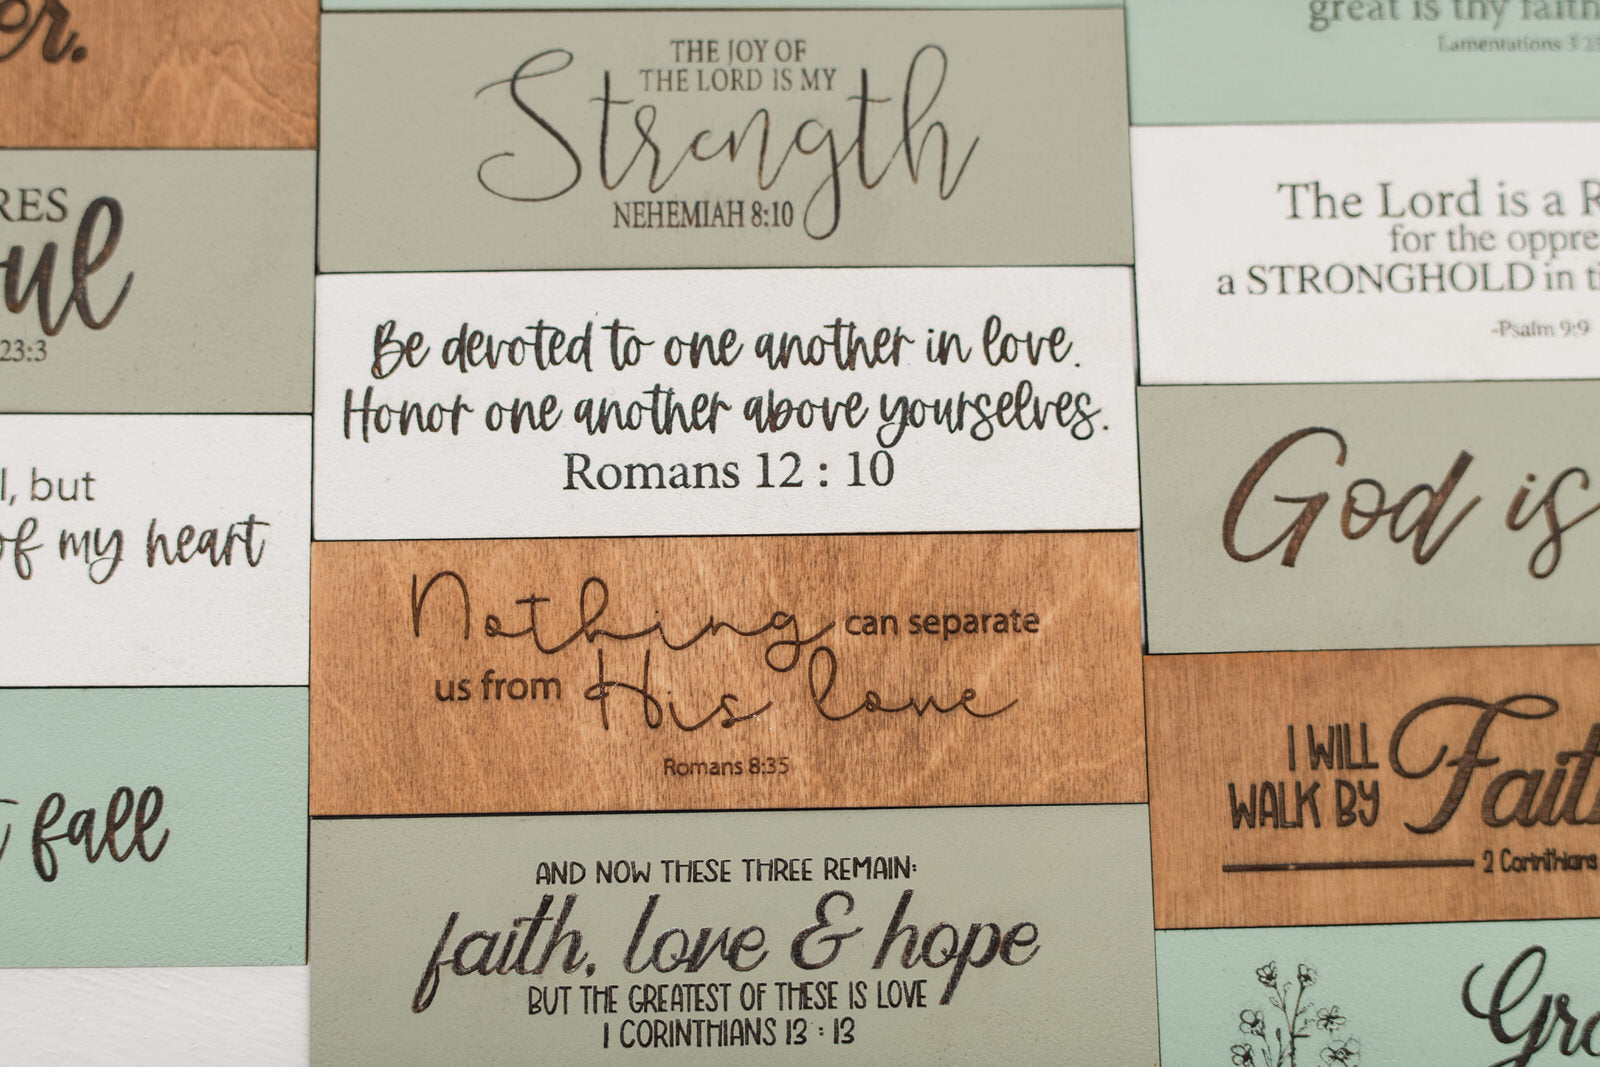 er.
RES
oul
23:3
l, but
of my heart
t fall
THE JOY OF
THE LORD IS MY
Strength
NEHEMIAH 8:10
Be devoted to one another in love.
Honor one another above yourselves.
Romans 12 : 10
Nothing can separate
us from His love
Romans 8:35
AND NOW THESE THREE REMAIN:
faith, love & hope
BUT THE GREATEST OF THESE IS LOVE
1 CORINTHIANS 13 : 13
great is thy faith
Lamentations 3 23
The Lord is a R
for the oppre
a STRONGHOLD in ti
-Psalm 9:9
God is
I WILL
WALK BY Fait
2 Corinthians
Gro